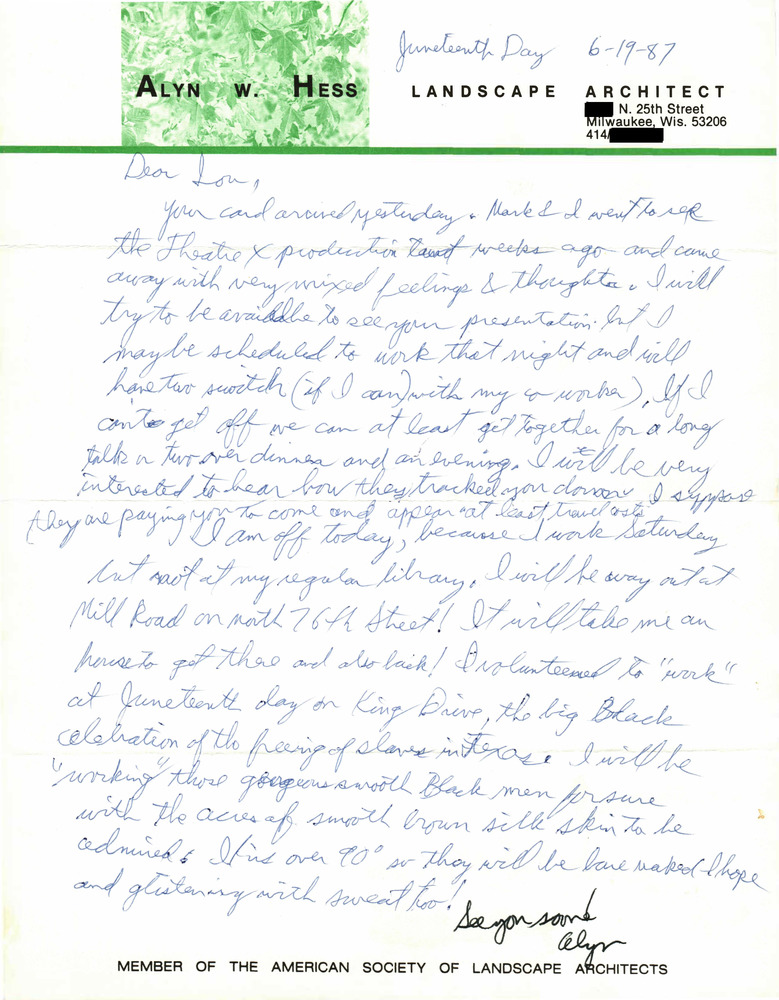 Juneteenth Day 6-19-87
ALYN W. HESS LANDSCAPE ARCHITECT
N. 25th Street
Milwaukee, Wis. 53206
414/
Dear Lou,
Your card arrived yesterday. Mark & I went to see
the Theatre X production weeks ago and came
away with very mixed feelings & thoughts. I will
try to be available to see your presentation. but I
may be scheduled to work that night and will
have two switch (if I can) with my co worker). If I
can't get off we can at least get together for a long
talk or two over dinner and an evening. I will be very
interested to hear how they tracked you down. I suppose
they are paying you to come and appear at least travel costs
I am off today, because I work Saturday
but not at my regular library. I will be way out at
Mill Road on north 76th Street! It will take me an
hour to get there and also back! I volunteered to "work"
at Juneteenth day on King Drive, the big Black
celebration of the freeing of slaves in Texas. I will be
"working" those gorgeous smooth Black men for sure
with the acres of smooth brown silk skin to be
admired. It is over 90° so they will be bare naked I hope
and glistening with sweat too!
See you soon!
Alyn
MEMBER OF THE AMERICAN SOCIETY OF LANDSCAPE ARCHITECTS